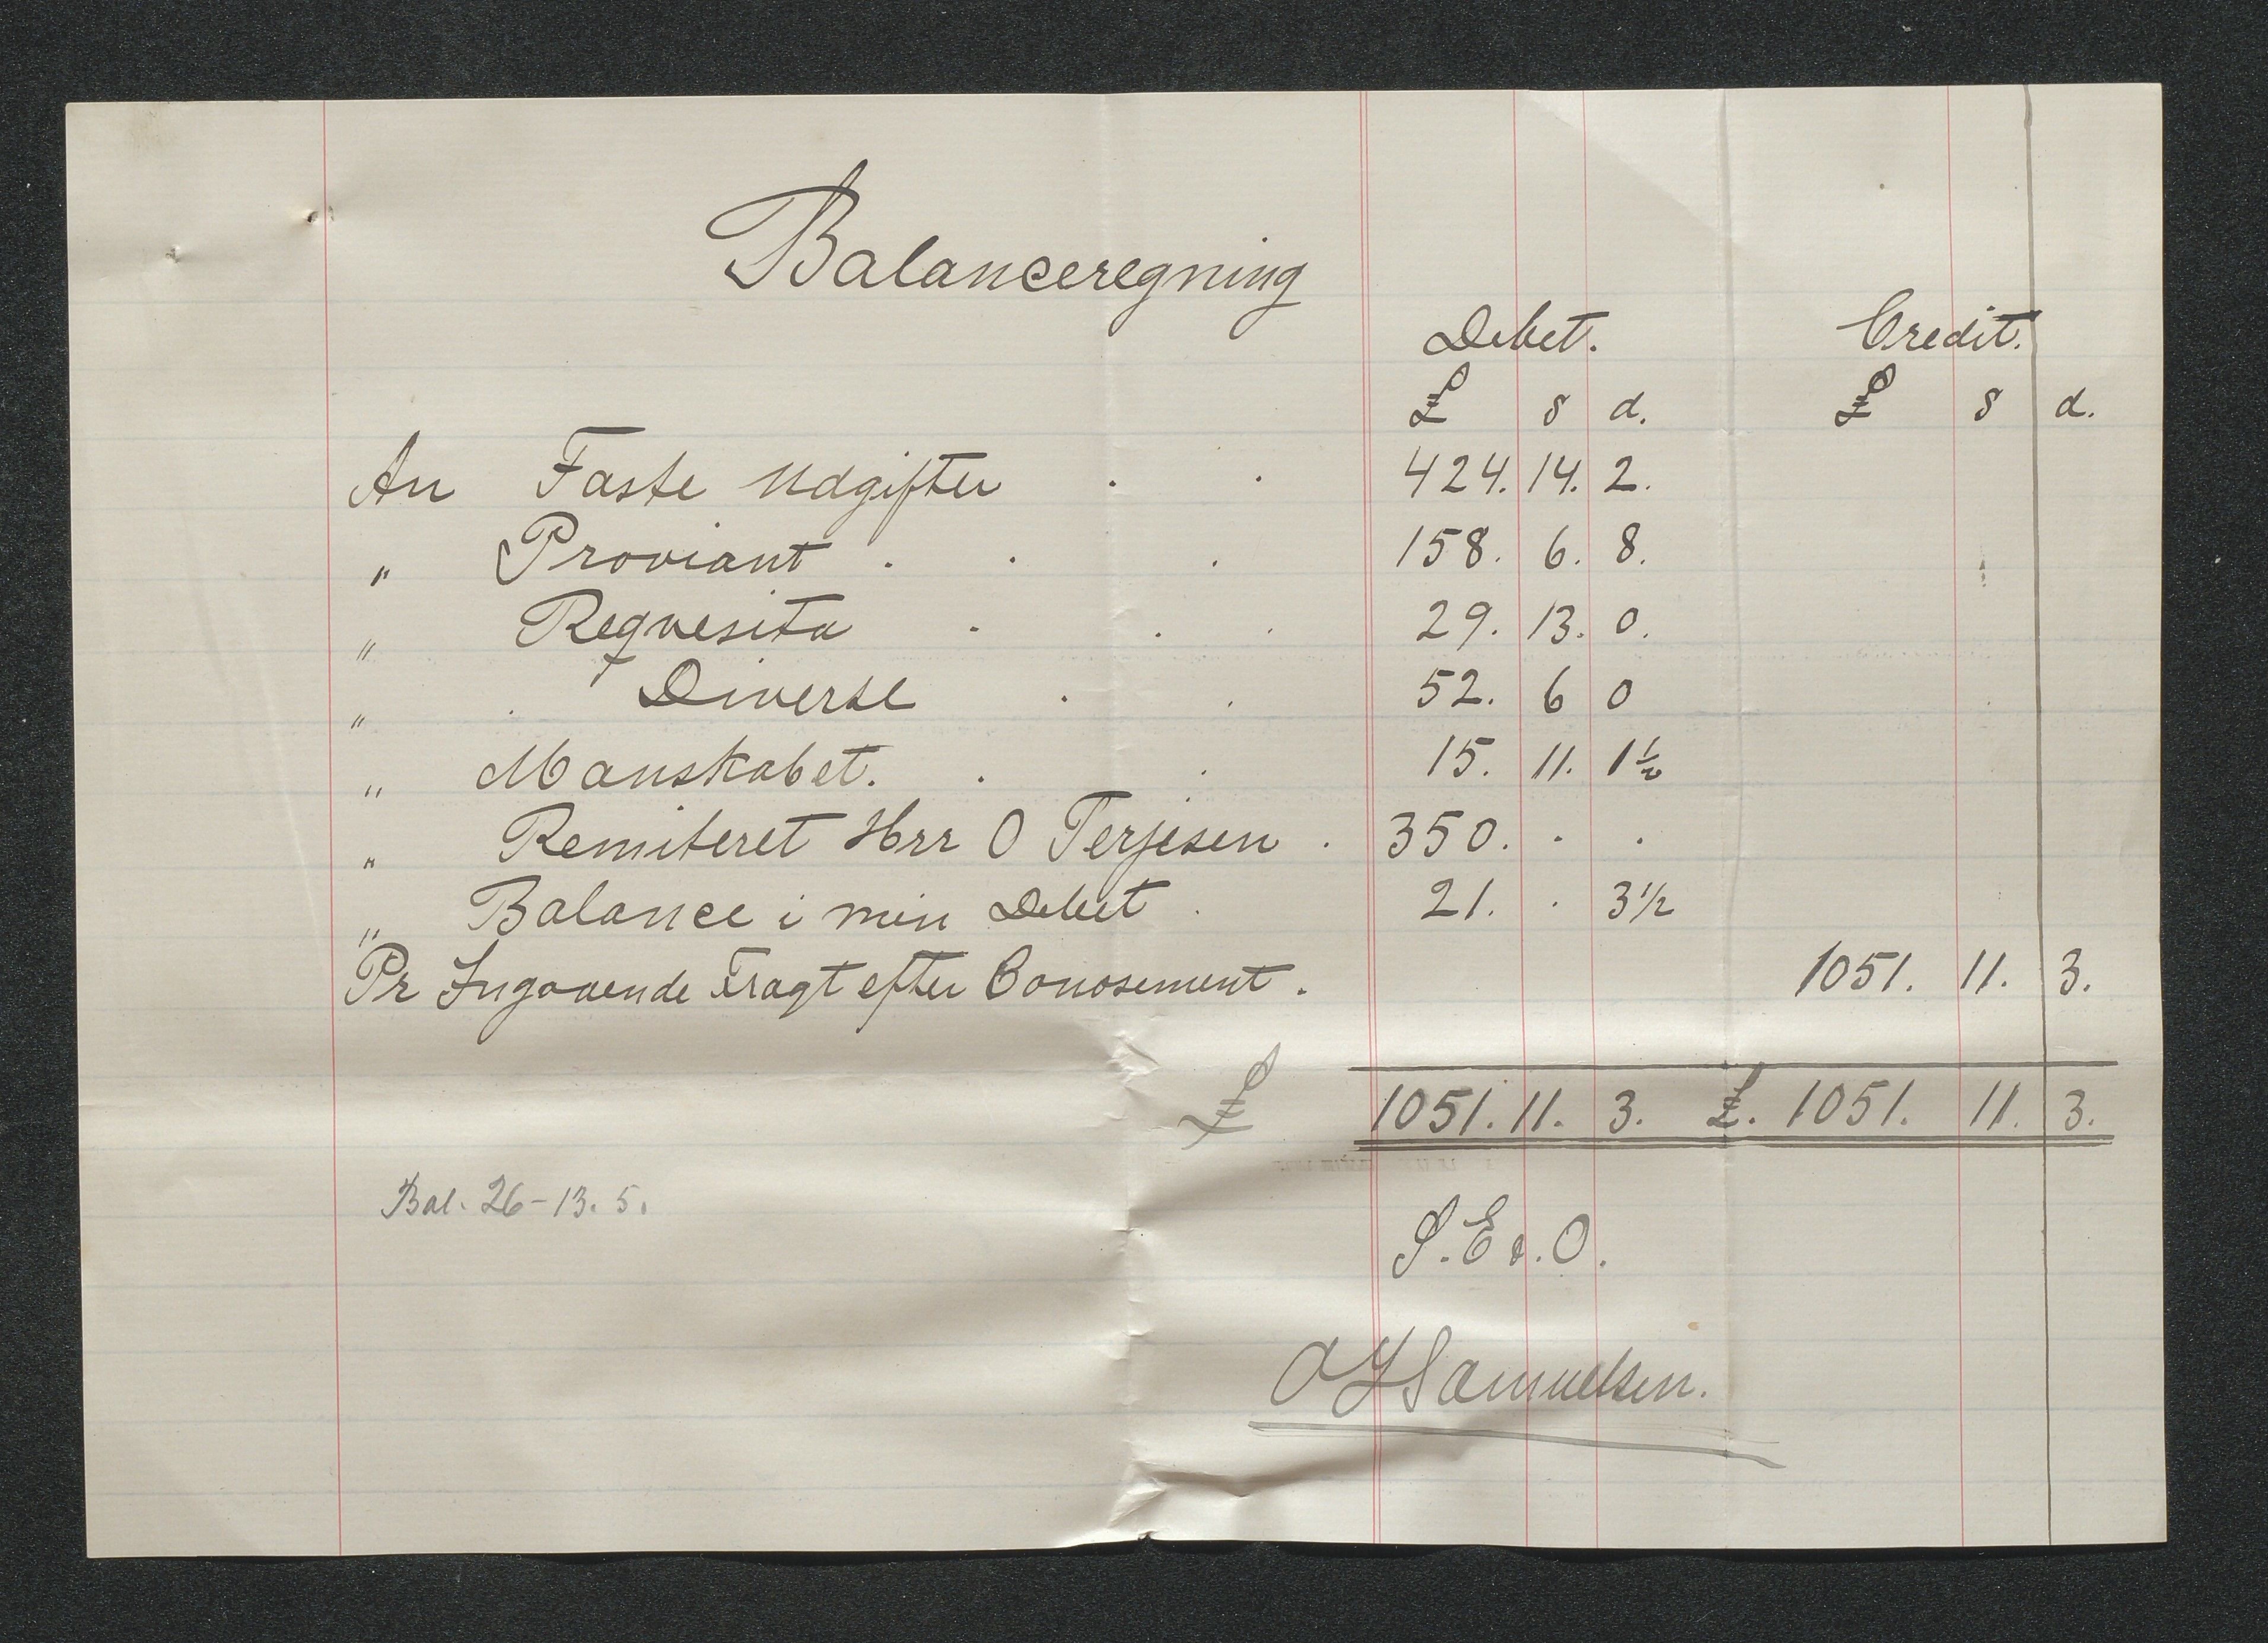 Balanceregning
Debet. Credit.
£ s d. £ s d.
An Faste Udgifter . . 424. 14. 2.
" Proviant . . . 158. 6. 8.
" Reqvesita . . . 29. 13. 0.
" Diverse . . 52. 6 0
" Manskabet. . . 15. 11. 1½
" Remiteret Hrr O Terjesen . 350. . .
" Balance i min Debet . 21. . 3½
Pr Ingaaende Fragt efter Conosement . 1051. 11. 3.
£ 1051. 11. 3. £. 1051. 11. 3.
Bal. 26-13. 5.
S. E & . O.
O J Samuelsen.